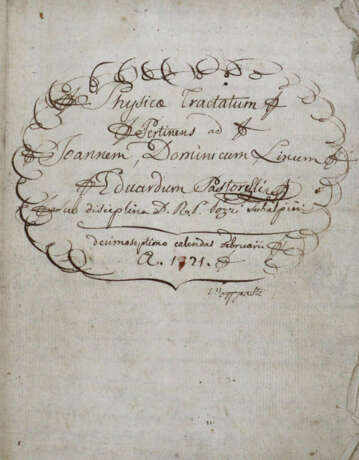 Physicæ Tractatum
Pertinens ad
Joannem Dominicum Linum
Eduardum Pastorelli
sub disciplina D. R. P.
decimoseptimo calendas februarii
A. 1721.